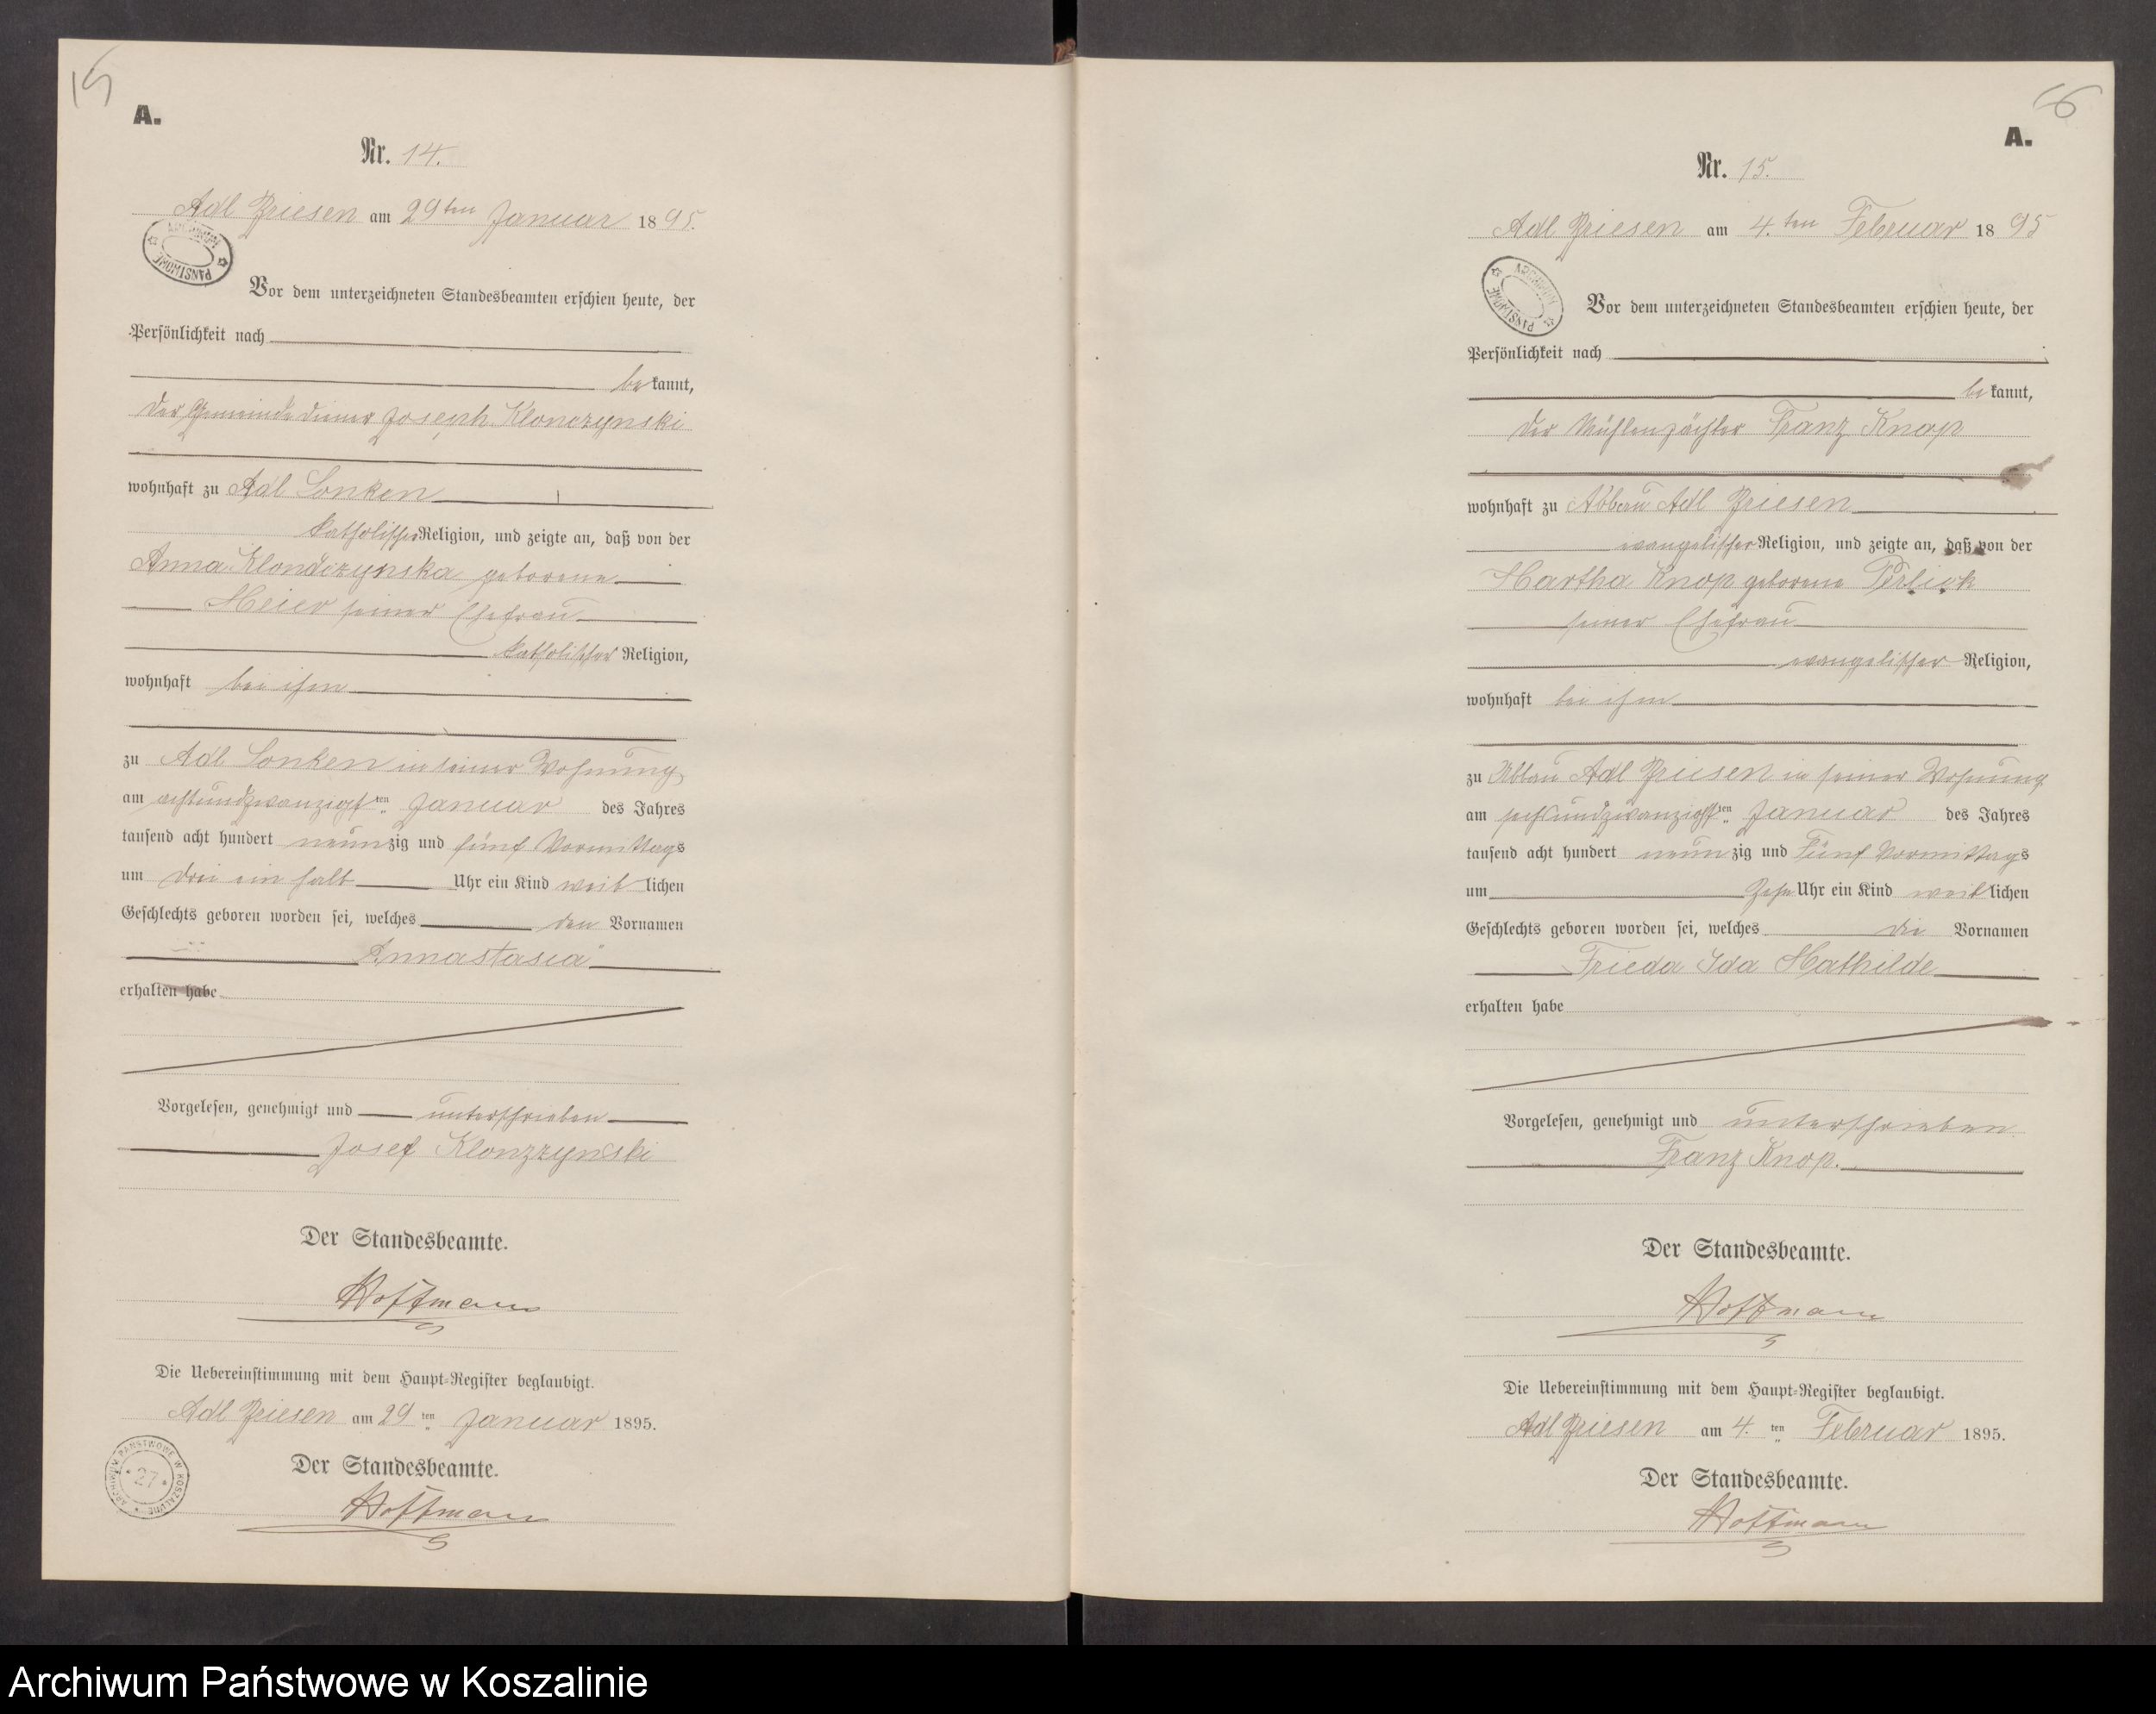 15
A.
Nr. 14.
Adl Briesen am 29ten Januar 1895.
ARCHIWUM PAŃSTWOWE
Vor dem unterzeichneten Standesbeamten erschien heute, der
Persönlichkeit nach
bekannt,
der Gemeindediener Joseph Klonczynski
wohnhaft zu Adl Lonken
katholischer Religion, und zeigte an, daß von der
Anna Klonczynska geborene
Meier seiner Ehefrau
katholischer Religion,
wohnhaft bei ihm
zu Adl Lonken in seiner Wohnung,
am achtundzwanzigsten Januar des Jahres
tausend acht hundert neunzig und fünf Vormittags
um drei ein halb Uhr ein Kind weiblichen
Geschlechts geboren worden sei, welches den Vornamen
Annastasia
erhalten habe
Vorgelesen, genehmigt und unterschrieben
Josef Klonzzynski
Der Standesbeamte.
Hoffmann
Die Uebereinstimmung mit dem Haupt-Register beglaubigt.
Adl Briesen am 29ten Januar 1895.
Der Standesbeamte.
ARCHIWUM PAŃSTWOWE W KOSZALINIE 27
Hoffmann
A.
Nr. 15.
Adl Briesen am 4.ten Februar 1895
ARCHIWUM PAŃSTWOWE
Vor dem unterzeichneten Standesbeamten erschien heute, der
Persönlichkeit nach
bekannt,
der Mühlenpächter Franz Knop
wohnhaft zu Abbau Adl Briesen
evangelischer Religion, und zeigte an, daß von der
Martha Knop geborene Perlick
seiner Ehefrau
evangelischer Religion,
wohnhaft bei ihm
zu Abbau Adl Briesen in seiner Wohnung
am sechsundzwanzigsten Januar des Jahres
tausend acht hundert neunzig und Fünf Vormittags
um Zehn Uhr ein Kind weiblichen
Geschlechts geboren worden sei, welches die Vornamen
Frieda Ida Mathilde
erhalten habe
Vorgelesen, genehmigt und unterschrieben
Franz Knop.
Der Standesbeamte.
Hoffmann
Die Uebereinstimmung mit dem Haupt-Register beglaubigt.
Adl Briesen am 4.ten Februar 1895.
Der Standesbeamte.
Hoffmann
Archiwum Państwowe w Koszalinie